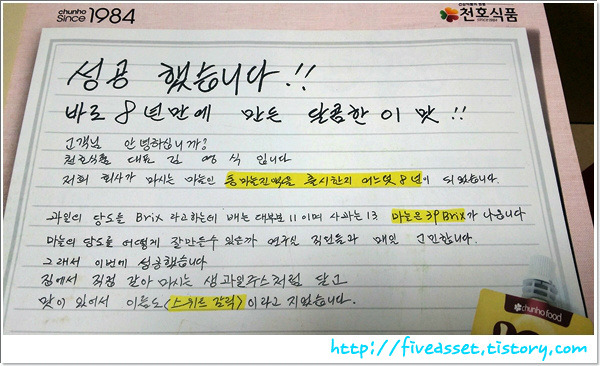 chunho
Since 1984
건강기능식품 전문
천호식품
SINCE 1984
성공 했습니다!!
바로 8년만에 만든 달콤한 이 맛!!
고객님 안녕하십니까?
천호식품 대표 김영식 입니다
저희 회사가 마시는 마늘인 통마늘진액을 출시한지 어느덧 8년이 되었습니다.
과일의 당도를 Brix 라고하는데 배는 대부분 11이며 사과는 13 마늘은 39 Brix가 나옵니다
마늘의 당도를 어떻게 잘만든수 있을까 연구실 직원들과 매일 고민합니다.
그래서 이번에 성공했습니다
집에서 직접 갈아 마시는 생과일주스처럼 달고
맛이 있어서 이름도 <스위트 갈릭> 이라고 지었습니다.
chunho food
http://fivedsset.tistory.com